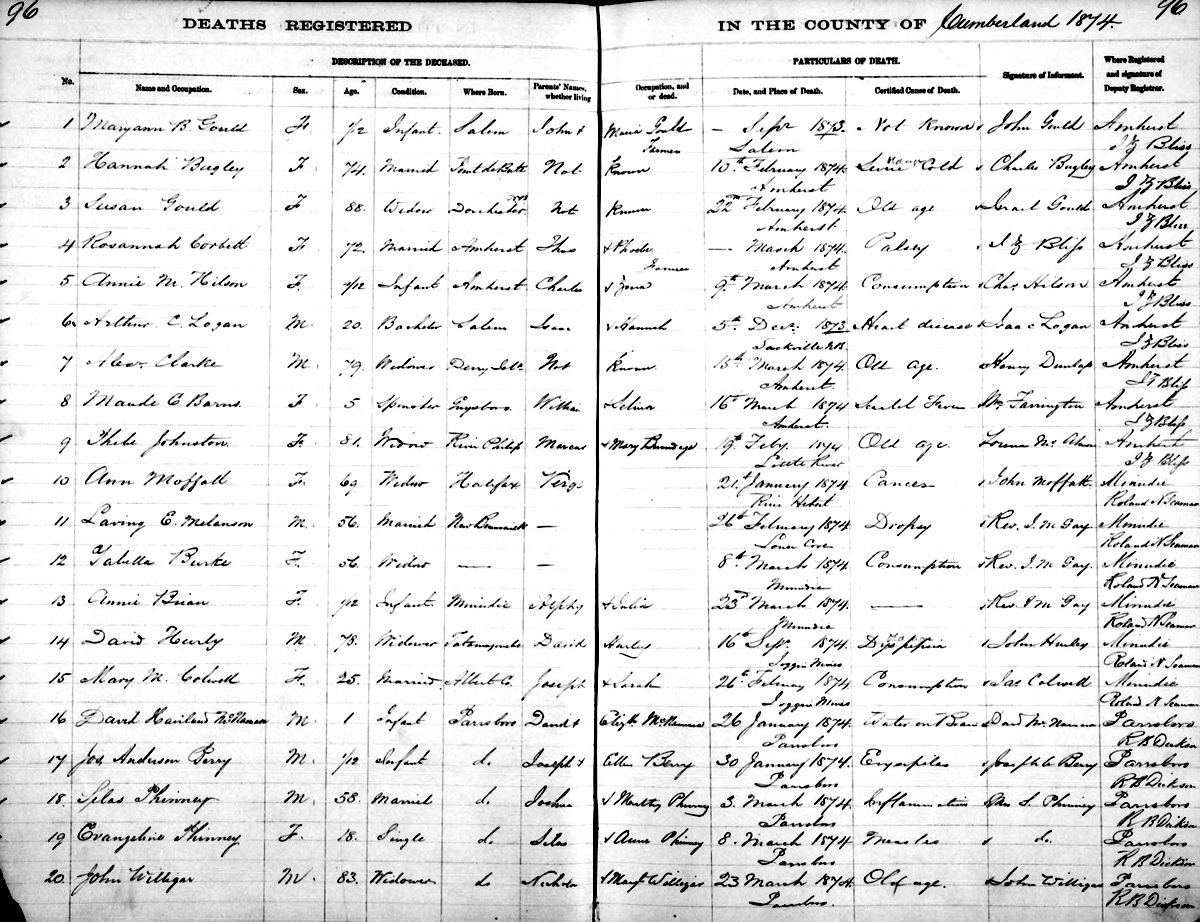 96
96
DEATHS REGISTERED IN THE COUNTY OF Cumberland 1874.
DESCRIPTION OF THE DECEASED. PARTICULARS OF DEATH.
No. Name and Occupation. Sex. Age. Condition. Where Born. Parents' Names, whether living Occupation, and or dead. Date, and Place of Death. Certified Cause of Death. Signature of Informant. Where Registered and signature of Deputy Registrar.
1 Maryann B Gould F. 1/12 Infant Salem John + Maria Gould — Sepr 1873. Not Known John Gould Amherst
Farmer Salem I Z Bliss
2 Hannah Bugley F 74. Married Not Known 10th February 1874. Cold Charles Bugley Amherst
Amherst I Z Bliss
3 Susan Gould F 88. Widow Dorchester Not Known 22nd February 1874. Old age Israel Gould Amherst
Amherst I Z Bliss
4 Rosannah Corbett F. 72. Married Amherst Thos + Phoebe — March 1874. Palsy I Z Bliss Amherst
Farmer Amherst I Z Bliss
5 Annie M. Hilson F. /12 Infant Amherst Charles + 9th March 1874. Consumption Chas Hilson Amherst
Amherst I Z Bliss
6 Arthur C. Logan M. 20. Bachelor Salem Isaac + Hannah 5th Decr 1873. Heart disease Isaac Logan Amherst
Sackville NB. I Z Bliss
7 Alexr Clarke M. 79. Widower Not Known 15th March 1874. Old Age. Henry Dunlap Amherst
Amherst I Z Bliss
8 Maude E Barns. F. 5 Spinster Guysboro. William + Selina 16th March 1874 Scarlet Fever Wm Farrington Amherst
Amherst. I Z Bliss
9 Phebe Johnston. F. 81. Widow River Philip Marcus + Mary Brundige 19th Feby. 1874 Old age. Amherst
Little River I Z Bliss
10 Ann Moffatt F. 69 Widow Halifax 21st January 1874 Cancer John Moffatt Minudie
River Hebert Roland N Seaman
11 E. Melanson M. 56. Married New Brunswick — 26th February 1874. Dropsy Rev. I. M Gay. Minudie
Lower Cove Roland N Seaman
12 Burke F. 56. Widow — — 8th March 1874. Consumption Rev. I. M Gay. Minudie
Minudie Roland N Seaman
13 Annie Brian F. /12 Infant. Minudie Alphy + Julia 23rd March 1874. — Rev I M Gay Minudie
Minudie Roland N Seaman
14 David Hurly M. 78. Widower Tatamagouche David Hurley 16th Sepr. 1874. John Hurley Minudie
Joggin Mines Roland N Seaman
15 Mary M. Colwell F. 25. Married. Albert Co. Joseph + Sarah 26th February 1874. Consumption Jas Colwell Minudie
Joggin Mines Roland N Seaman
16 David Haviland McNamara M. 1 Infant Parrsboro David + Elizth McNamara 26 January 1874. Water on Brain David McNamara Parrsboro
Parrsboro R B Dickson
17 Jos. Anderson Berry M. 1/12 Infant do. Joseph + Ellen Berry 30 January 1874. Erysipelas Joseph C Berry Parrsboro
Parrsboro R B Dickson
18. Silas Phinney M. 53. Married do. Joshua + Martha Phinney 3. March 1874. Inflammation Mrs S. Phinney Parrsboro
Parrsboro R B Dickson
19 Evangeline Phinney F. 18. Single do Silas + Anne Phinney 8. March 1874 Measles do. Parrsboro
Parrsboro R B Dickson
20. John Willigar M. 83. Widower do Nicholas + Mary Willigar 23 March 1874. Old age. John Willigar Parrsboro
Parrsboro. R B Dickson